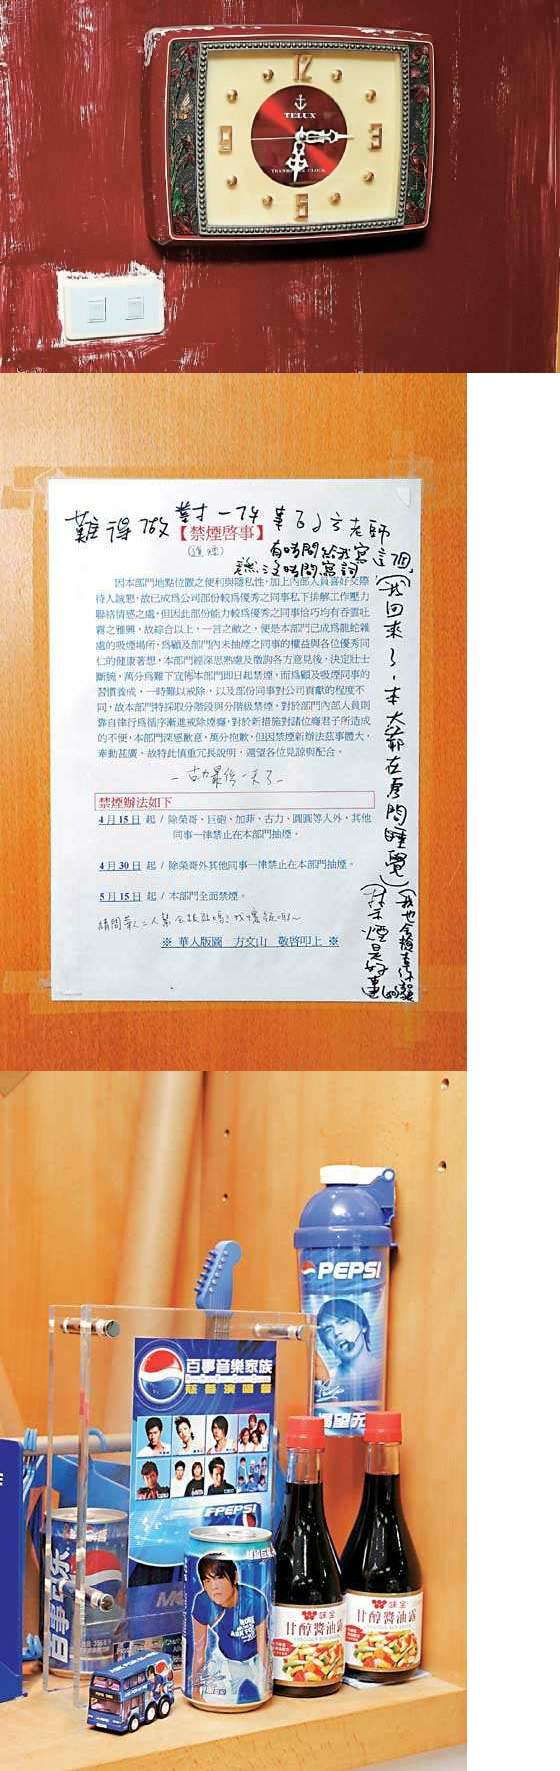 12
TELUX
9
3
TRANSISTOR CLOCK
6
難得做對一件事的方老師
【禁煙啓事】
有時間給我寫這個,
怎麼沒時間寫詞
(我回來了,本大爺在房間睡覺)
因本部門地點位置之便利與隱私性,加上內部人員喜好交際
待人誠懇,故已成為公司部份較為優秀之同事私下排解工作壓力
聯絡情感之處,但因此部份能力較為優秀之同事恰巧均有吞雲吐
霧之雅興,故綜合以上,一言之敝之,便是本部門已成為龍蛇雜
處的吸煙場所,為顧及部門內未抽煙之同事的權益與各位優秀同
仁的健康著想,本部門經深思熟慮及徵詢各方意見後,決定壯士
斷腕,萬分為難下宣佈本部門即日起禁煙,而為顧及吸煙同事的
習慣養成,一時難以戒除,以及部份同事對公司貢獻的程度不
同,故本部門特採取分階段與分階級禁煙,對於部門內部人員則
靠自律行為循序漸進戒除煙癮,對於新措施對諸位癮君子所造成
的不便,本部門深感歉意,萬分抱歉,但因禁煙新辦法茲事體大,
牽動甚廣,故特此慎重冗長說明,還望各位見諒與配合。
—古力最後一天了—
禁煙辦法如下
4月15日 起 / 除榮哥、巨砲、加菲、古力、圓圓等人外,其他
同事一律禁止在本部門抽煙。
4月30日 起 / 除榮哥外其他同事一律禁止在本部門抽煙。
5月15日 起 / 本部門全面禁煙。
※ 華人版圖 方文山 敬啓叩上 ※
禁煙是好事
PEPSI
百事音樂家族
慈善演唱會
PEPSI
百事可乐
味全
甘醇醬油露
味全
甘醇醬油露